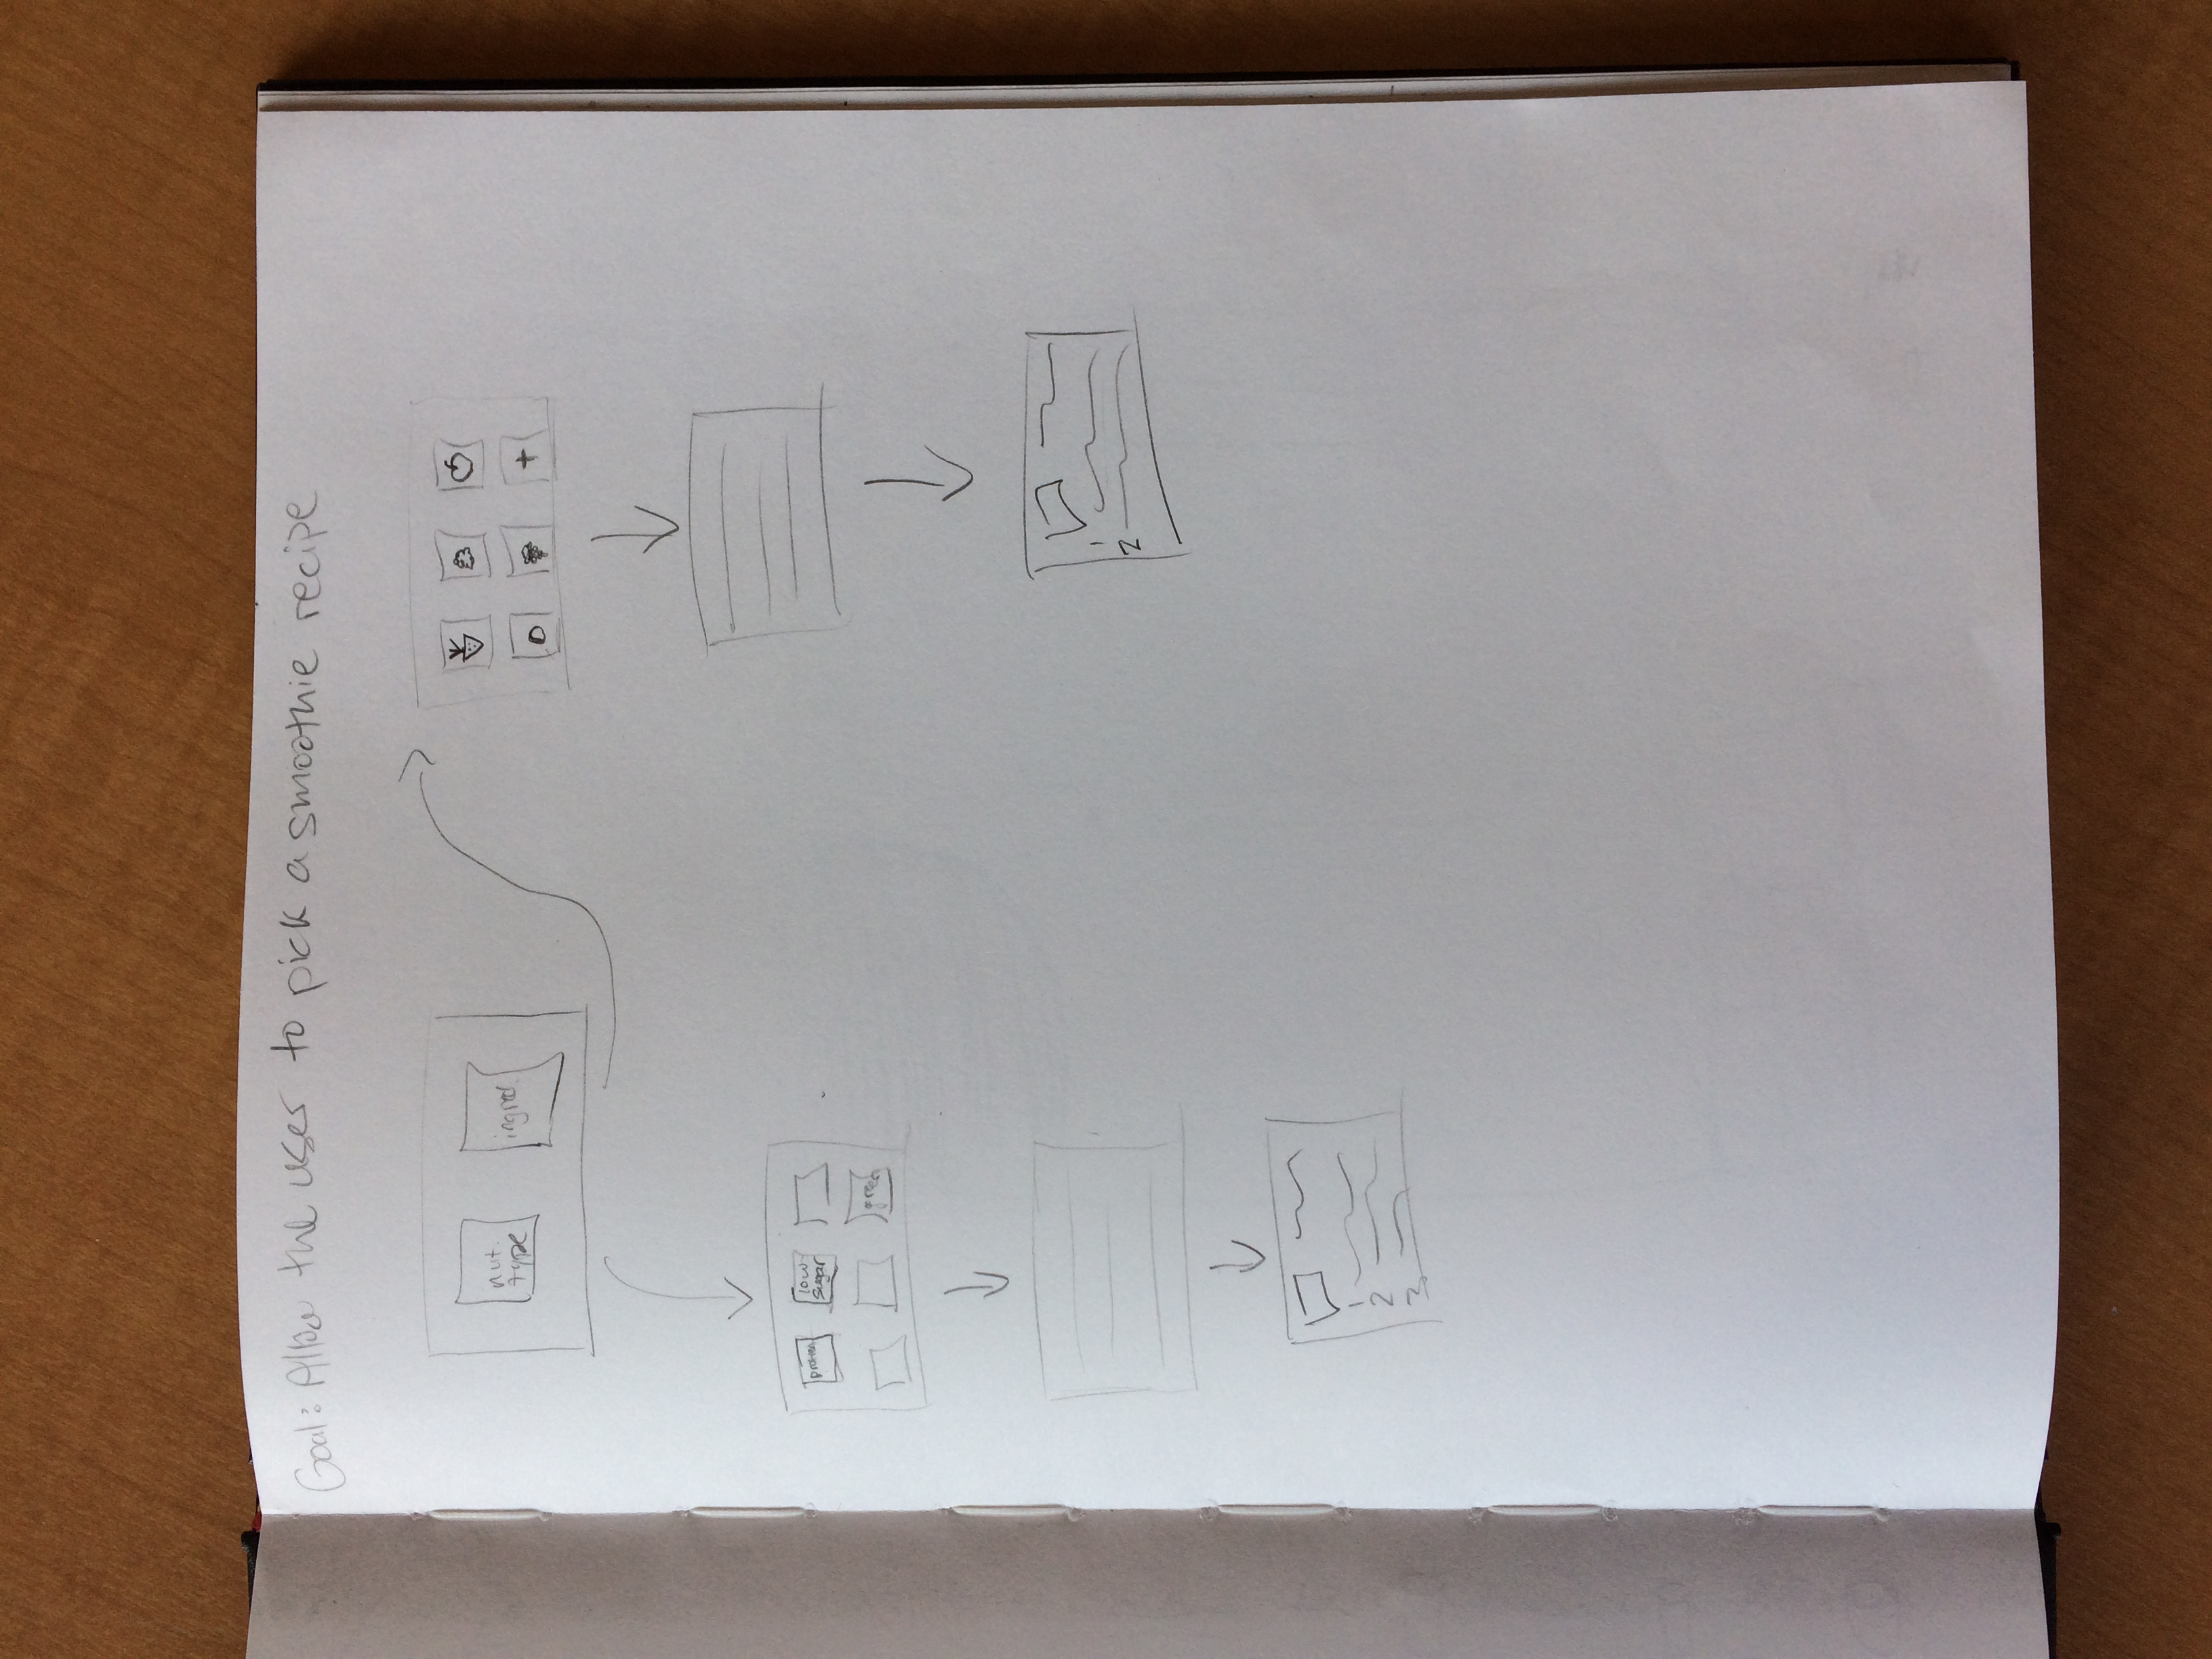 Goal: Allow the user to pick a smoothie recipe
nut.
type
ingred.
+
protein
low
sugar
green
1
2
1
2
3